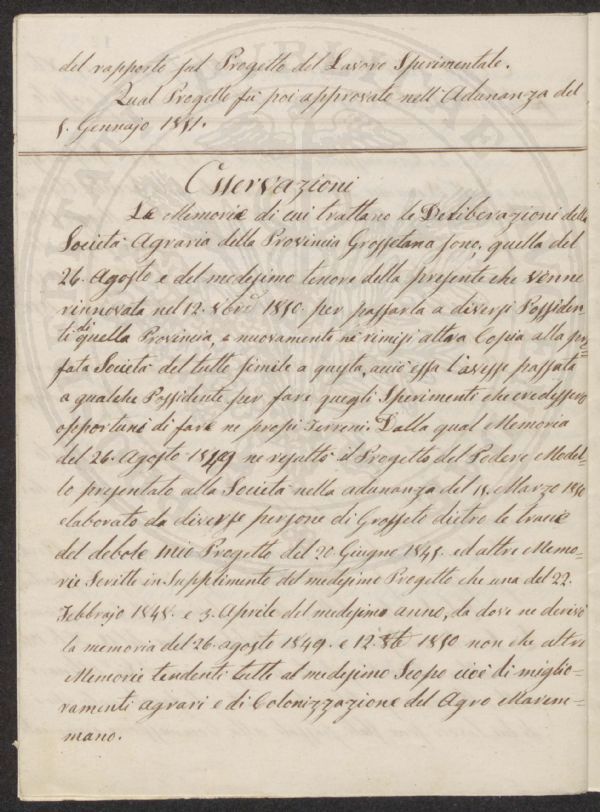 del rapporto sul Progetto del Lavoro Sperimentale.
Qual Progetto fù poi approvato nell'Adunanza del
5. Gennajo 1851.
Osservazioni
Le Memorie di cui trattano le Deliberazioni della
Società Agraria della Provincia Grossetana sono, quella del
26. Agosto e del medesimo tenore della presente che venne
rinnovata nel 12. 8bre 1850. per passarla a diversi Possiden
ti di quella Provincia, e nuovamente ne rimisi altra Copia alla pre=
fata Società del tutto simile a questa, acciò essa l'avesse passata
a qualche Possidente per fare quegli Sperimenti che credessero
opportuni di fare ne propi Terreni. Dalla qual Memoria
del 26. Agosto 1849 ne resultò il Progetto del Podere Model=
lo presentato alla Società nella adunanza del Marzo 1850
elaborato da diverse persone di Grosseto dietro le tracie
del debole mio Progetto del 20. Giugno 1845. ed altre Memo=
rie Scritte in Supplimento del medesimo Progetto che una del 22.
Febbrajo 1848. e 3. Aprile del medesimo anno, da dove ne derivò
la memoria del 26. agosto 1849. e 12. 8bre 1850 non che altre
Memorie tendenti tutte al medesimo Scopo cioè di miglio=
ramenti agrari e di Colonizzazione del Agro Marem=
mano.